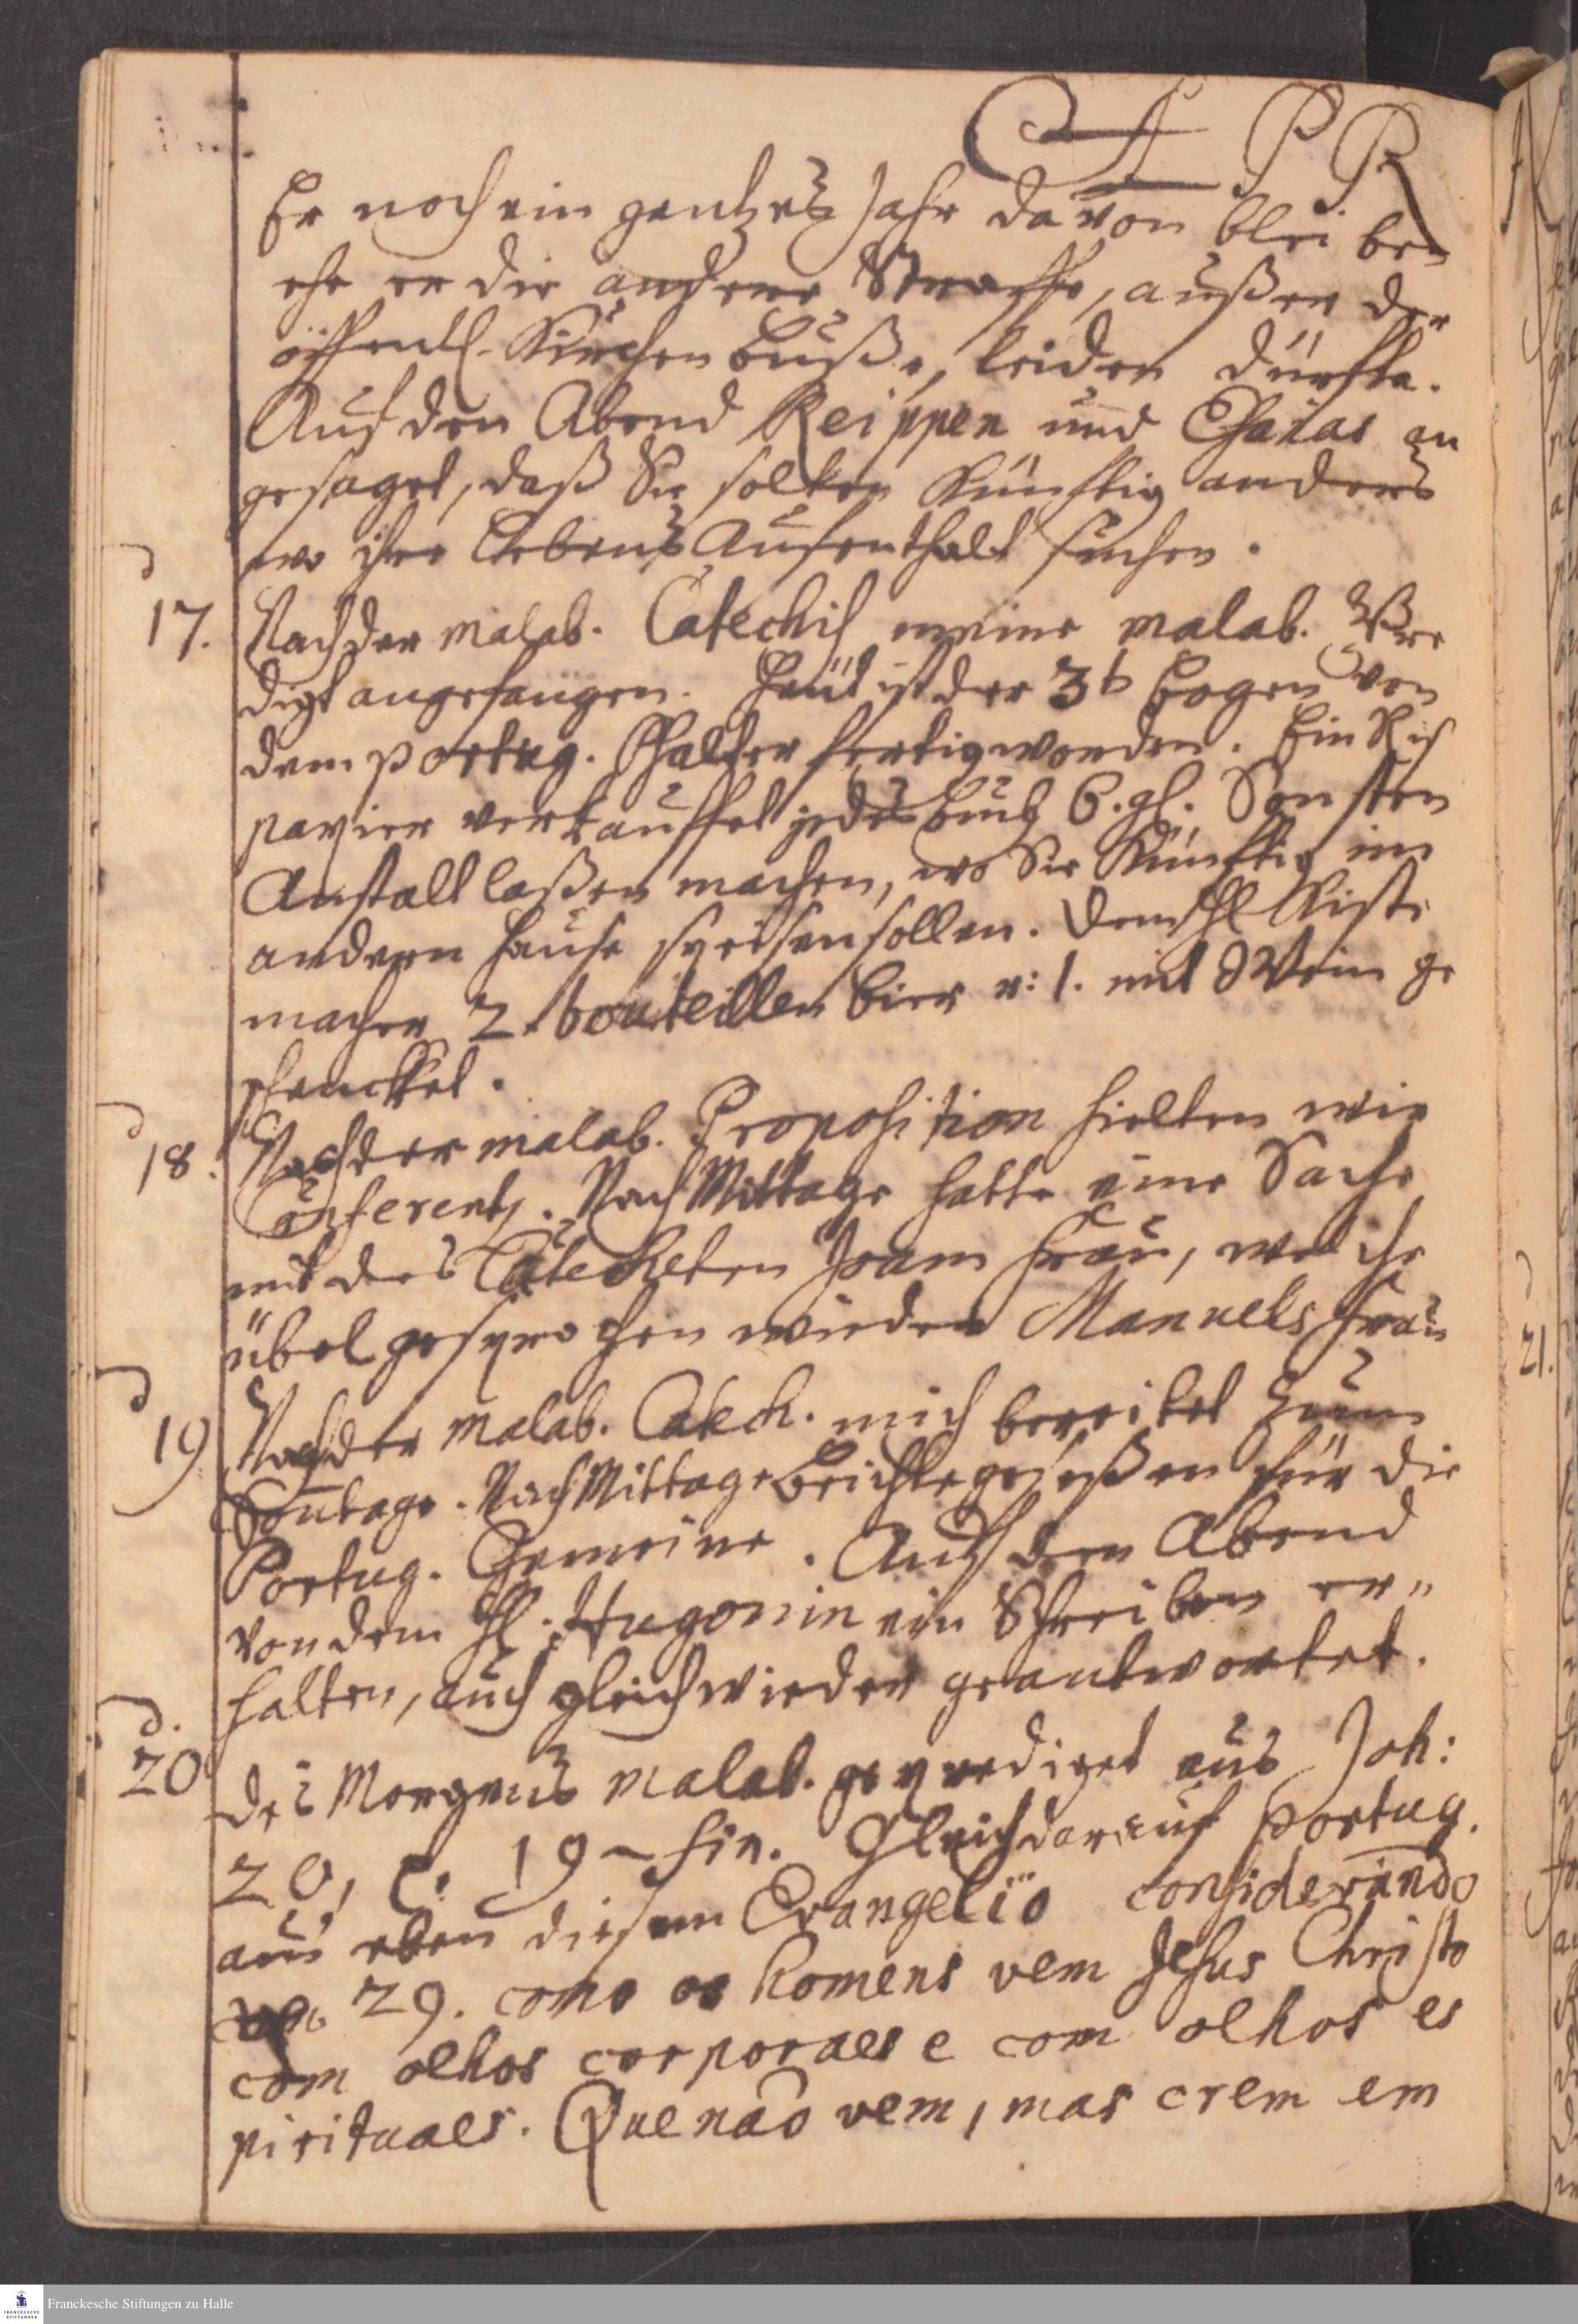 APR
Er noch ein gantzes Jahr davon bleiben
ehe er die andere Straffe, außer der
öffentl. Kirchen Buße, leiden dürffte.
Auf den Abend Keippen und Chaias an
gesaget, daß Sie solten Künfftig anders
wo ihre Lebens Aufenthalt suchen.
d
17. Nach der malab. Catechis meine malab. Pre
digt angefangen. Heut ist der 3t Bogen von
dem portug. Psalter fertig worden. Ein Riß
papier verkauffet jedes Buch 6. gl. Sonsten
Anstalt laßen machen, wo Sie Künfftig im
andern Hause speisen sollen. Dem H Kiste
macher 2. bouteillen Bier u: 1. mit Wein ge
schencket.
d
18. Nach der malab. Proposition hielten wir
Conferentz. Nach Mittage hatte eine Sache
mit des Catecheten Joam Frau, welche
übel gesprochen wieder Manuels Frau
d
19. Nach der malab. Catech. mich bereitet zum
Sontage. Nach Mittage Beichte geseßen für die
Portug. Gemeine. Auf den Abend
von dem H. Hugonin ein Schreiben er„
halten, auch gleich wieder geantwortet.
d.
20 des Morgens malab. geprediget aus Joh:
20, C: 19 – fin. Gleich darauf portug.
aus eben diesem Evangelio considerando
29. como os homens vem Jesus Christo
com olhos corporaes e com olhos es
pirituaes. Que nao vem, mas crem em
21.
Franckesche Stiftungen zu Halle